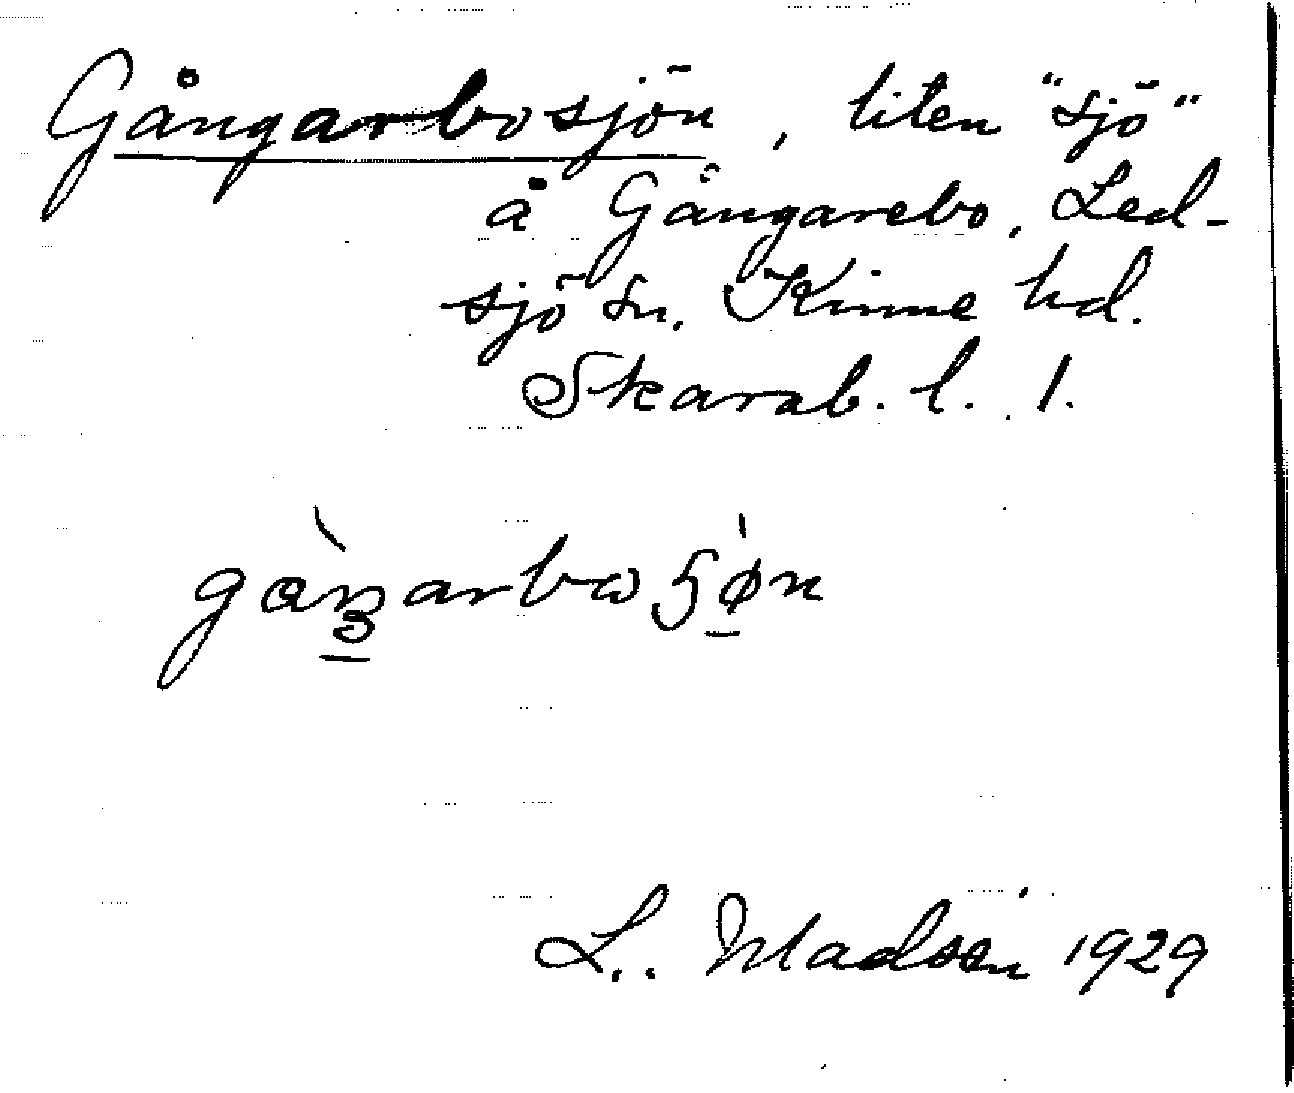 Gångarbosjön, liten "sjö"
å Gångarebo, Led-
sjö sn. Kinne hd.
Skarab. l. 1.
L. Madsén 1929